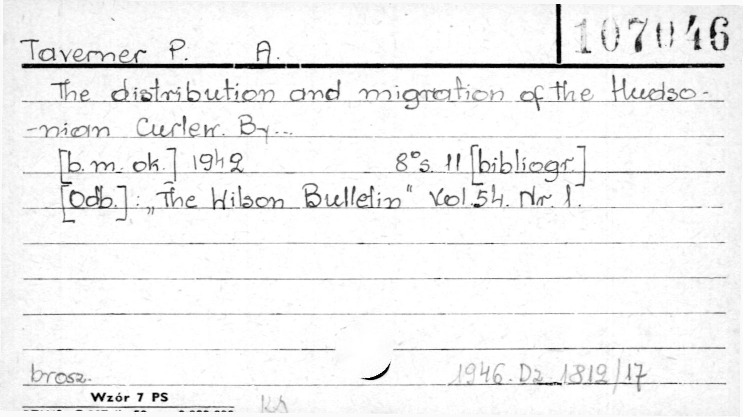 107046
Taverner P. A.
The distribution and migration of the Hudso-
-nian Curlew. By...
[b.m. ok.] 1942 8°s. 11 [bibliogr.]
[Odb.]: „The Wilson Bulletin" Vol. 54. Nr. 1.
brosz. 1946. Dz. 1812/17
Wzór 7 PS